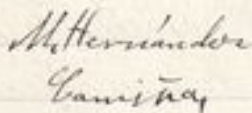 M. Hernándor
Camiña,